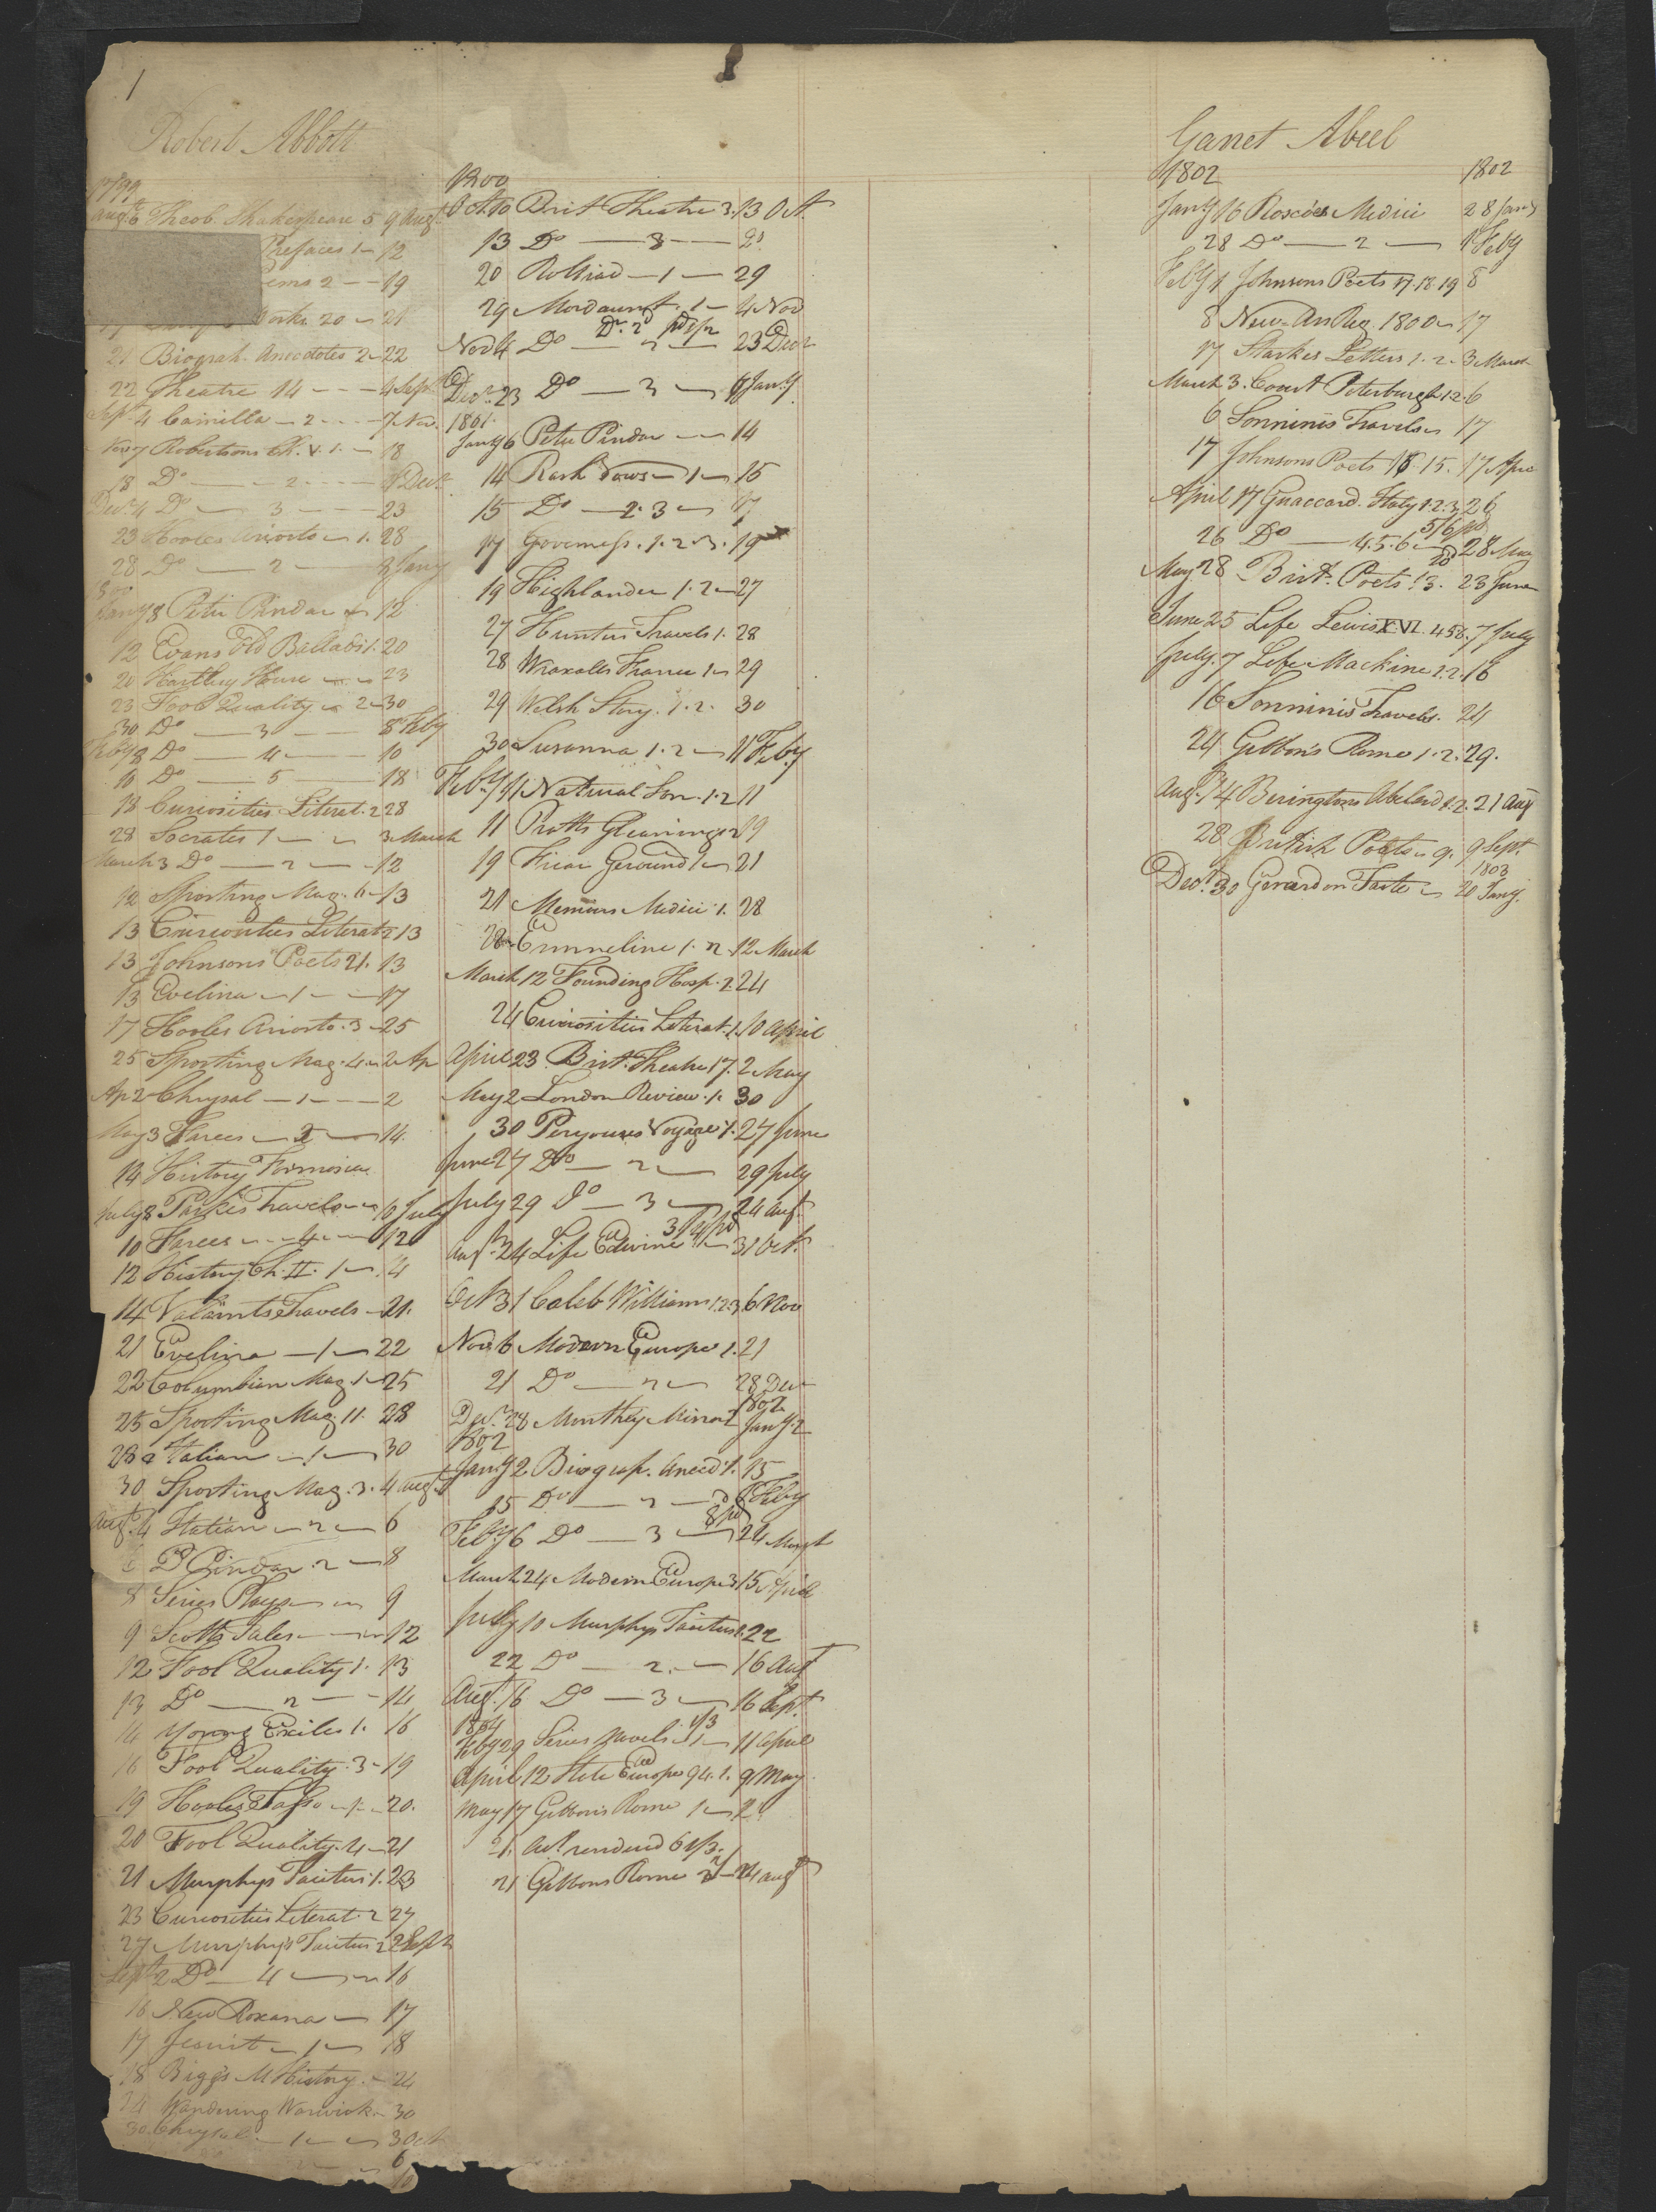 1
Robert Abbott
1799
Augt 6 Theob. Shakespeare 5 9 Augt
Prefaces 1 - 12
2 - - 19
Works 20 - 21
21 Biograh. Anecdotes 2 - 22
22 Theatre 14 - - - 4 Sept
Sept 4 Camilla - 2 - - - 7 Nov.
Nov 7 Robertsons Ch. V. 1. - 18
18 Do - - 2 - - - 4 Decr
Decr 4 Do - 3 - - - 23
23 Hooles Ariosto - 1. 28
28 Do - 2 - 8 Jany
1800
Jany 8 Peter Pindar - 12
12 Evans Old Ballads 1. 20
20 Hartley House - - 23
23 Fool Quality - 2 - 30
30 Do - 3 - - 8 Feby
Feby 8 Do - 4 - 10
10 Do - 5 - 18
18 Curiosities Literat. 2 28
28 Socrates 1 - - 3 March
March 3 Do - 2 - - 12
12 Sporting Mag. 6 - 13
13 Curiosities Literat 2 13
13 Johnsons Poets 21. 13
13 Evelina - 1 - - 17
17 Hooles Ariosto. 3 - 25
25 Sporting Mag. 4 - 2 Ap
Ap 2 Chrysal - 1 - - - 2
May 3 Farces - 2 - 14.
14 History Formosa
July 8 Parkes Travels - - 10 July
10 Farces - - 4 - - 12
12 History Ch. II. 1 - . 4
14 Valiants Travels - 21.
21 Evelina - 1 - 22
22 Columbian Mag. 1 - 25
25 Sporting Mag. 11. 28
28 Italian - 1 - 30
30 Sporting Mag. 3. 4 Augt
Augt 4 Italian - 2 - 6
6 P Pindar. 2 - 8
8 Series Plays - - 9
9 Scotts Tales - - - 12
12 Fool Quality 1. 13
13 Do - 2 - - 14
14 Young Exiles 1. 16
16 Fool Quality. 3 - 19
19 Hooles Tasso - 1 - 20.
20 Fool Quality. 4 - 21
21 Murphys Tacitus 1. 23
23 Curiosities Literat. 2 27
27 Murphys Tacitus 2 2 Sept
Sept 2 Do - 4 - - 16
16 New Roxana - 17
17 Jesuit - 1 - 18
18 Biggs M History. - 24
24 Wandering Warwick - 30
30 Chrysal - 1 - - 3 Oct
6
10
1800
Oct 10 Brit Theatre 3. 13 Oct.
13 Do - 8 - - 20
20 Rolliad - 1 - 29
29 Mordaunt. 1 - 4 Nov
Nov 4 Do - 2 - 23 Decr
Decr. 23 Do - 3 - 6 Jany
1801.
Jany 6 Peter Pindar - - 14
14 Rash Vows - 1 - 15
15 Do - 2. 3 - 17
17 Governess. 1. 2. 3. 19
19 Highlander 1. 2 - 27
27 Hunters Travels 1. 28
28 Wraxalls France 1 - 29
29 Welsh Story. 1. 2. 30
30 Susanna 1. 2 - 11 Feby
Feby 11 Natural Son. 1. 2 11
11 Pratts Gleanings 2 19
19 Friar Gerund 1 - 21
21 Memoirs Medici 1. 28
28 Emmeline 1. 2. 12 March
March 12 Founding Hosp. 2. 24
24 Curiosities Literat. 1. 10 April
April 23 Brit. Theatre 17. 2 May
May 2 London Review. 1. 30
30 Peryouses Voyage 1. 27 June
June 27 Do - 2 - 29 July
July 29 Do - 3 - 24 Augt.
Augt. 24 Life Edwine 1 - 31 Oct.
Oct 31 Caleb Williams 1. 2. 3. 6 Nov
Nov 6 Modern Europe 1. 21
21 Do - 2 - 28 Decr
1802
Decr. 28 Monthly Mirror 2 Jany 2
1802
Jany 2 Biograp. Anecd. 1. 15
15 Do - 2 - 6 Feby
Feby 6 Do - 3 - 24 March
March 24 Modern Europe 3 15 April
July 10 Murphys Tacitus 1. 22
22 Do - 2. - 16 Augt
Augt. 16 Do - 3 - 16 Sept.
1804
1/3
Feby 29 Series Novels. 1 - 11 April
April 12 State Europe 94. 1. 9 May
May 17 Gibbons Rome 1 - 21
21. Act rendered 6/3.
21 Gibbons Rome 2 - 24 Augt
Garret Abeel
1802 1802
Jany 16 Roscoes Medici 28 Jany
28 Do - 2 - 1 Feby
Feby 1 Johnsons Poets 17. 18. 19 8
8 New An Reg. 1800 - 17
17 Starkes Letters 1. 2. 3 March
March 3. Court Petersburgh 1. 2. 6
6 Sonninis Travels - 17
17 Johnsons Poets 15. 17 Apr
April 17 Guaccard. Italy 1. 2. 3. 26
5/6 pd
26 Do - 4. 5. 6 - 28 May
May 28 Brit. Poets 13. 23 June
June 25 Life Lewis XVI. 4 5 6. 7 July
July. 7 Life Mackline 1. 2. 16
16 Sonninis Travels. 24
24 Gibbon's Rome 1. 2. 29.
Augt. 14 Beringtons Abelard 1. 2. 21 Aug
28 British Poets - 9. 9 Sept.
1803
Decr 30 Gerard on Taste - 20 Jany.